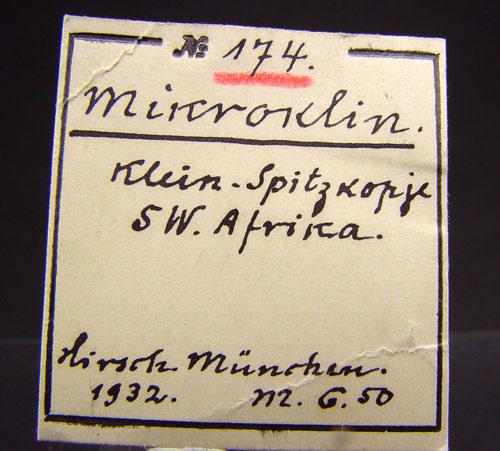 № 174.
Mikroklin.
Klein-Spitzkopje
SW. Afrika.
Hirsch. München.
1932. M. G. 50